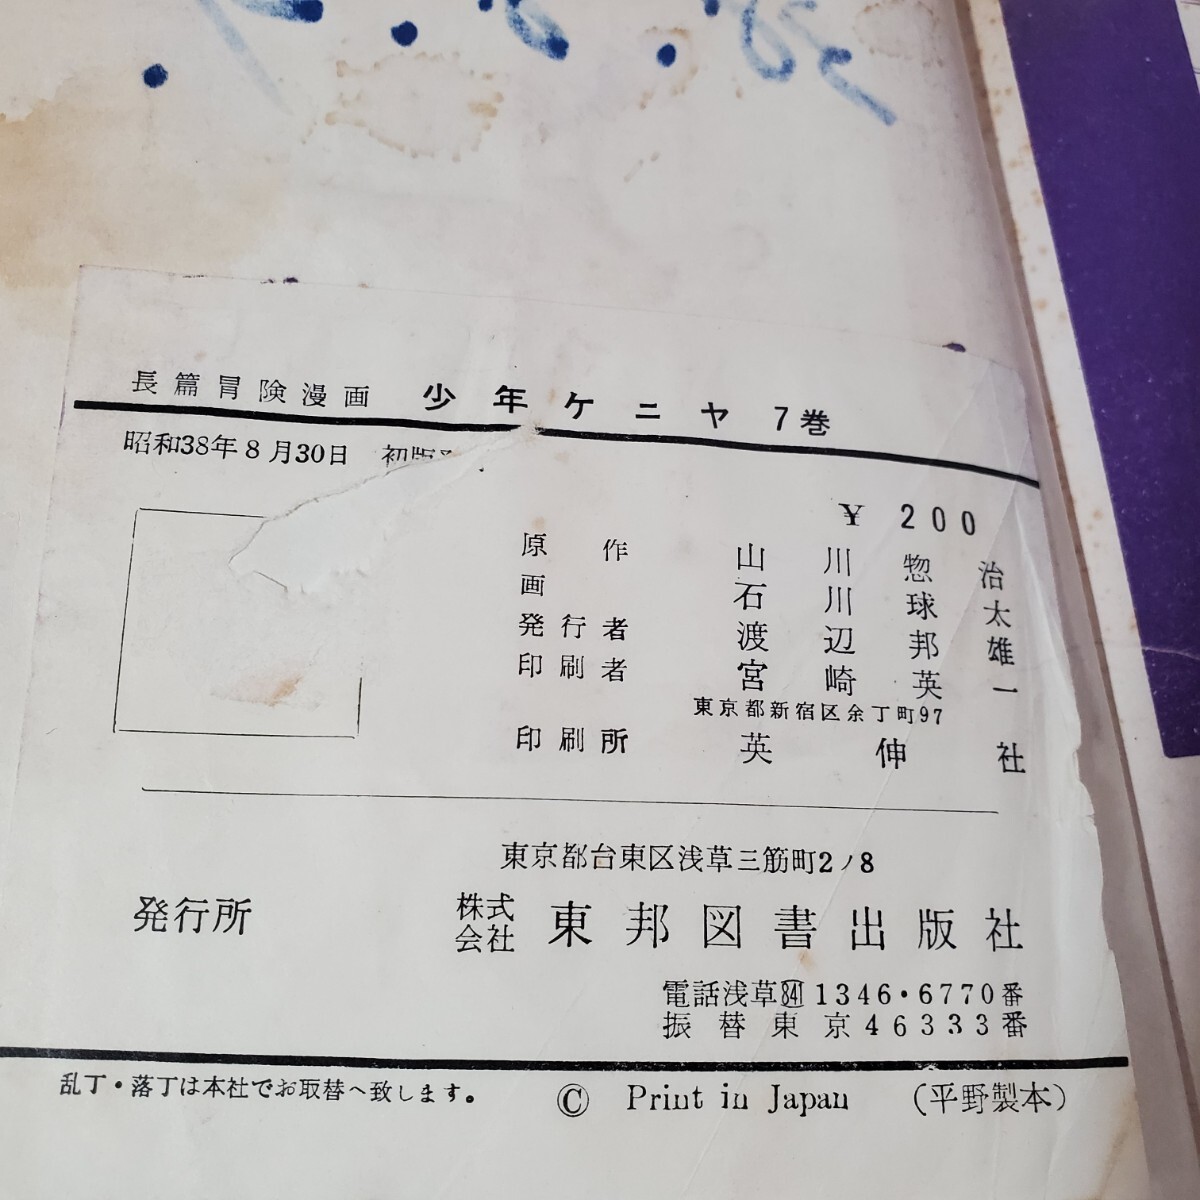 長篇冒険漫画 少年ケニヤ 7巻
昭和38年8月30日 初版
¥ 200
原作 山川惣治
画 石川球太
発行者 渡辺邦雄
印刷者 宮崎英一
東京都新宿区余丁町97
印刷所 英伸社
東京都台東区浅草三筋町2ノ8
発行所 株式会社 東邦図書出版社
電話浅草(841)1346・6770番
振替東京46333番
乱丁・落丁は本社でお取替へ致します。 © Print in Japan (平野製本)